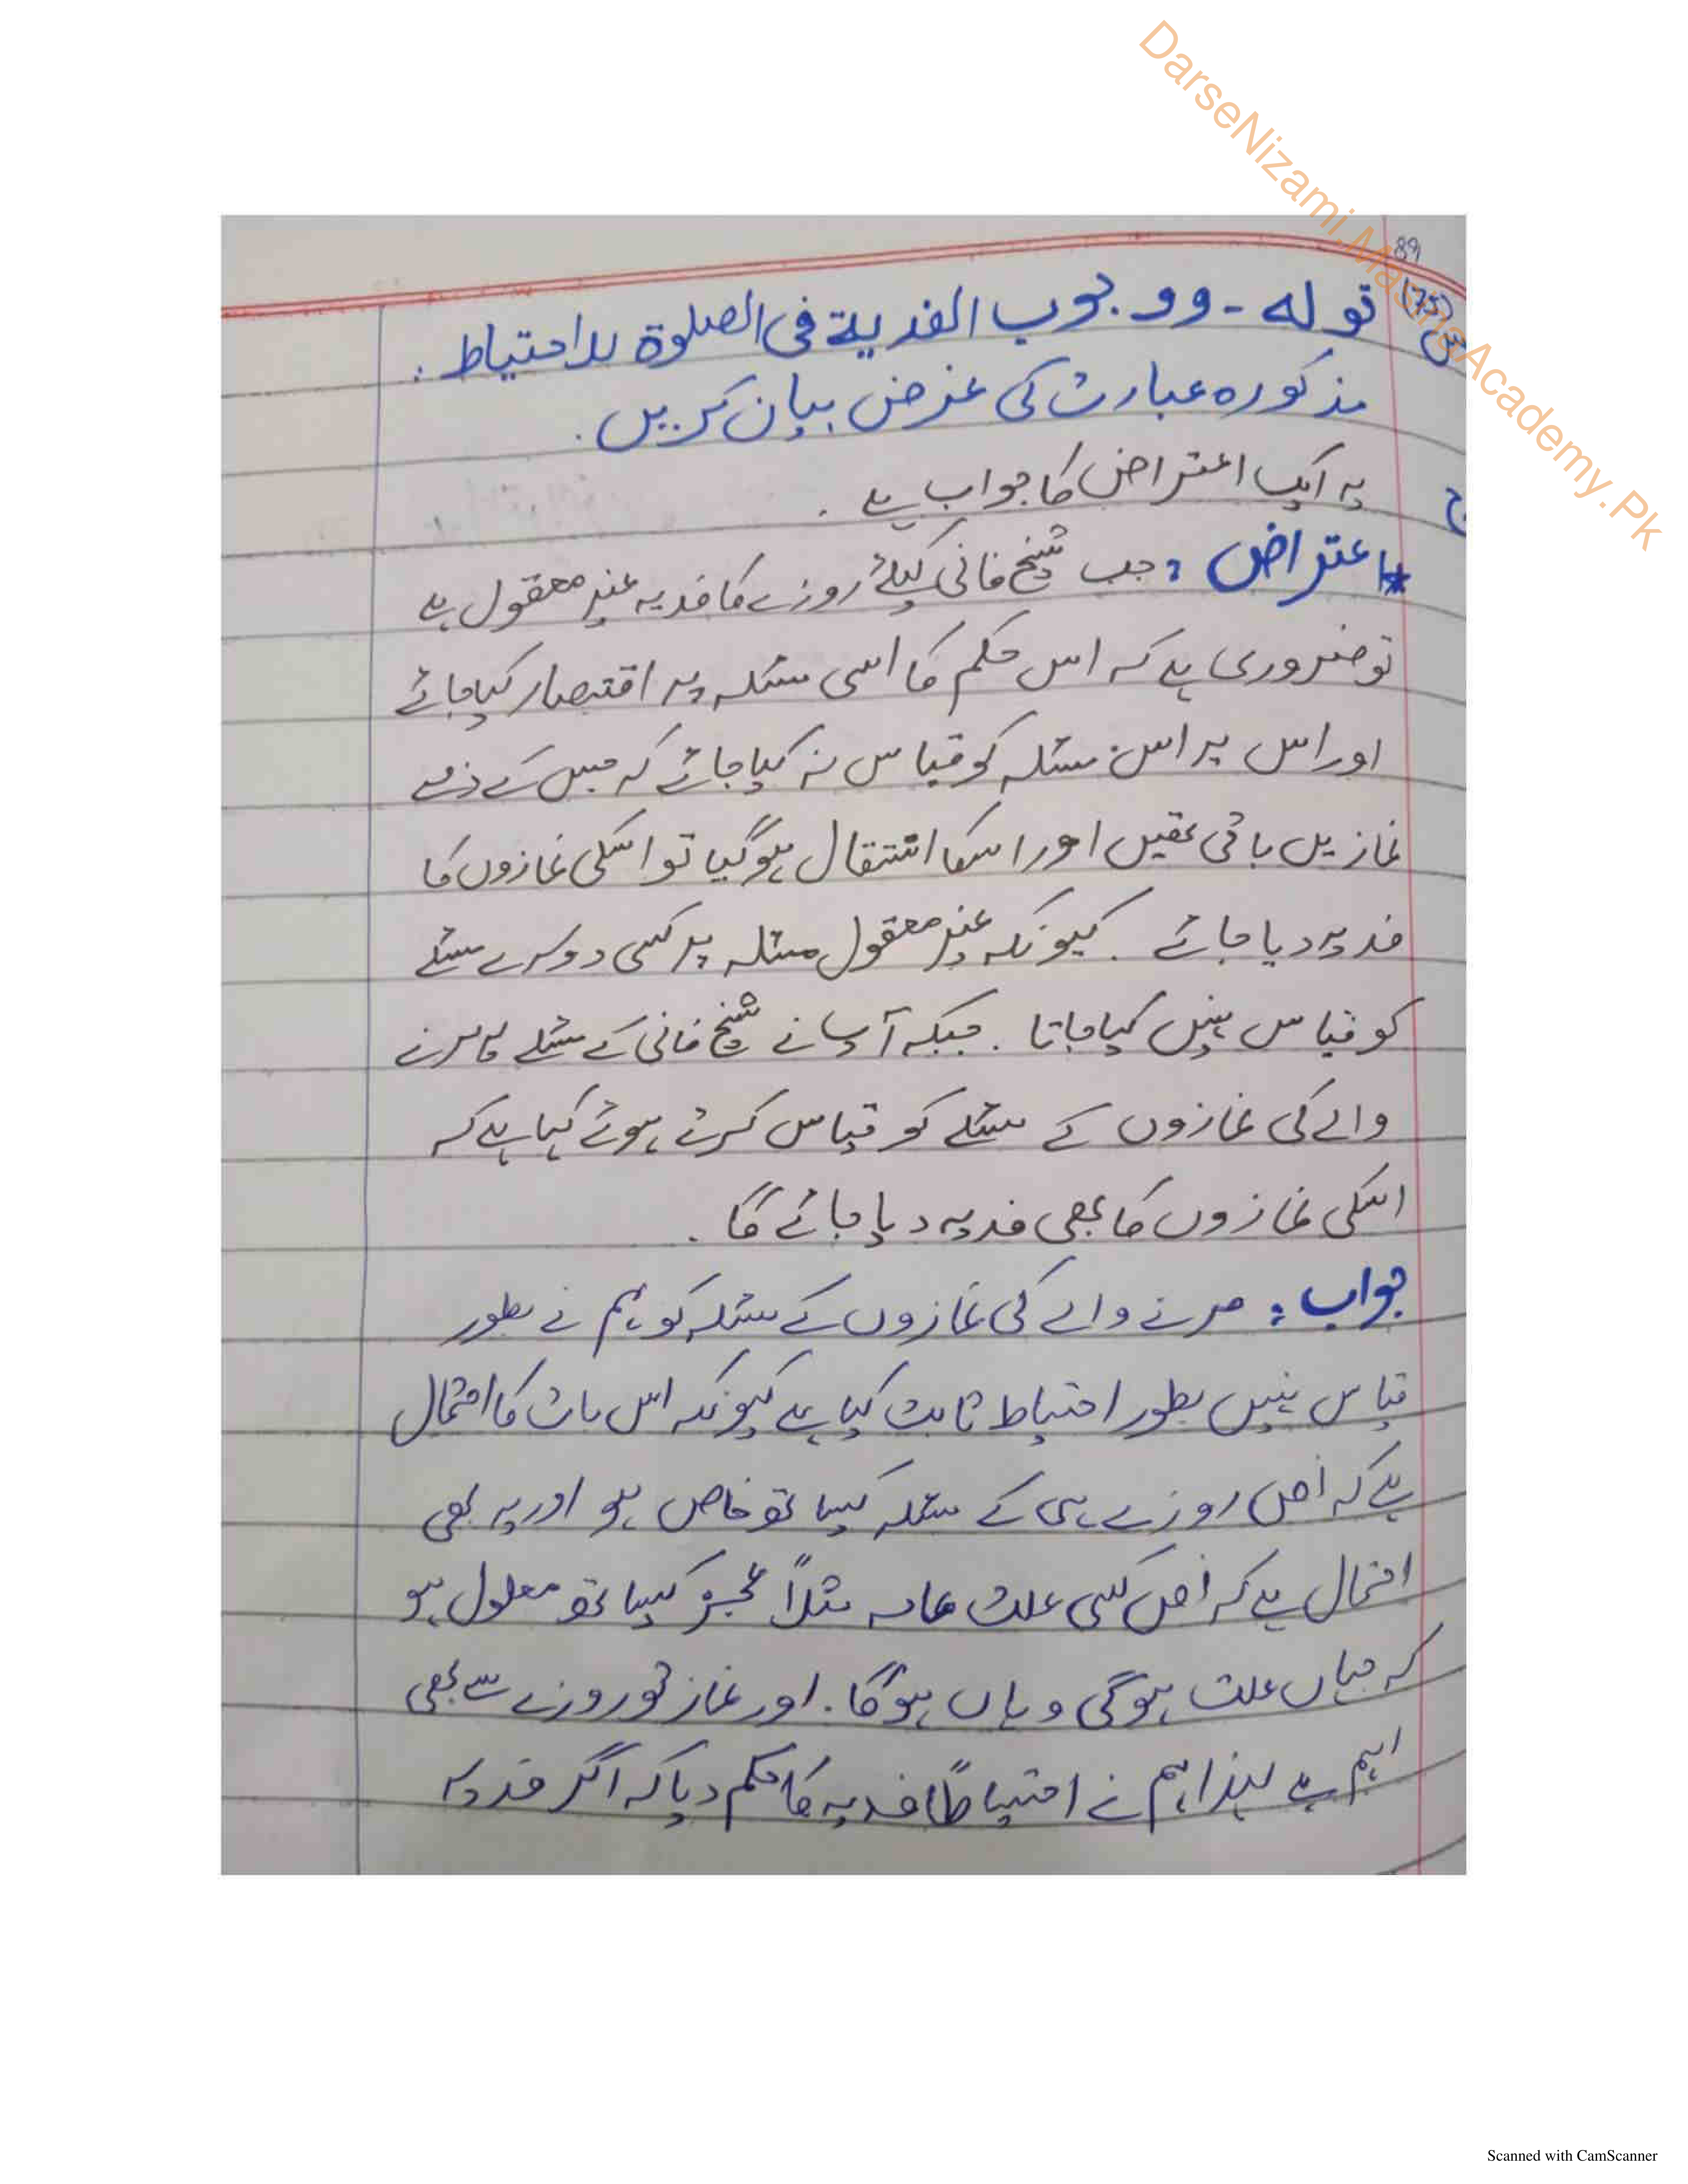 DarseNizami.MadinaAcademy.Pk
89
س (75) قولہ - ووجوب الفدیۃ فی الصلوۃ للاحتیاط :
مذکورہ عبارت کی غرض بیان کریں .
ج یہ ایک اعتراض کا جواب ہے .
*اعتراض : جب شیخ فانی کیلئے روزے کا فدیہ غیر معقول ہے
تو ضروری ہے کہ اس حکم کا اسی مسئلہ پر اقتصار کیا جائے
اور اس پر اس مسئلہ کو قیاس نہ کیا جائے کہ جس کے ذمے
نمازیں باقی تھیں اور اسکا انتقال ہوگیا تو اسکی نمازوں کا
فدیہ دیا جائے . کیونکہ غیر معقول مسئلہ پر کسی دوسرے مسئلے
کو قیاس نہیں کیا جاتا . جبکہ آپ نے شیخ فانی کے مسئلے پر مرنے
والے کی نمازوں کے مسئلے کو قیاس کرتے ہوئے کہا ہے کہ
اسکی نمازوں کا بھی فدیہ دیا جائے گا .
جواب : مرنے والے کی نمازوں کے مسئلہ کو ہم نے بطور
قیاس نہیں بطور احتیاط ثابت کیا ہے کیونکہ اس بات کا احتمال
ہے کہ نص روزے ہی کے مسئلہ کیساتھ خاص ہو اور یہ بھی
احتمال ہے کہ نص کسی علت عامہ مثلاً عجز کیساتھ معلول ہو
کہ جہاں علت ہوگی وہاں ہوگا . اور نماز تو روزے سے بھی
اہم ہے لہذا ہم نے احتیاطاً فدیہ کا حکم دیا کہ اگر فدیہ
Scanned with CamScanner